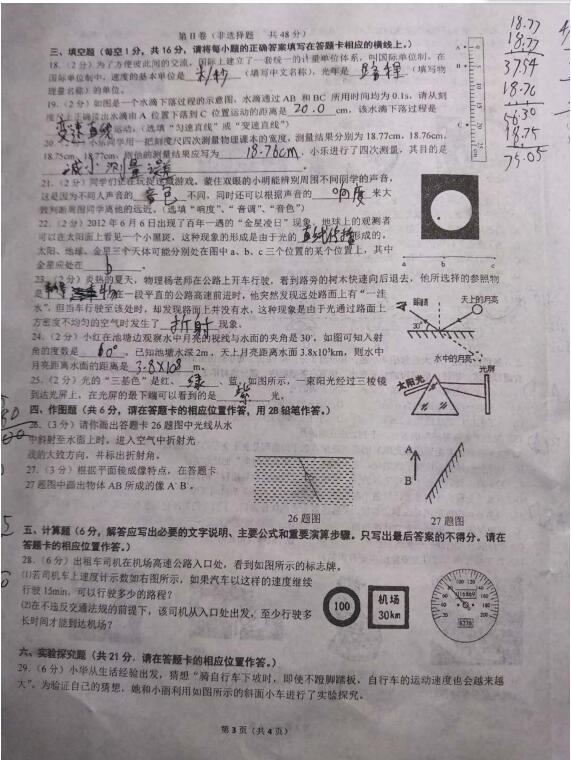 第Ⅱ卷（非选择题 共48分）
三、填空题（每空1分，共16分，请将每小题的正确答案填写在答题卡相应的横线上。）
18.（2分）为了方便彼此间的交流，国际上建立了一套统一的计量单位体系，叫国际单位制，在
国际单位制中，速度的基本单位是 米/秒 （填写中文名称），光年是 路程 （填写物
理量名称）的单位。
19.（2分）如图是一个水滴下落过程的示意图，水滴通过AB和BC所用时间均为0.1s，请从刻
度尺上正确读出水滴由A位置下落到C位置运动的距离是 20.0 cm，该水滴下落过程是
变速直线 运动。（选填“匀速直线”或“变速直线”）
小乐同学用一把刻度尺四次测量物理课本的宽度，测量结果分别为18.77cm、18.76cm、
18.75cm、18.77cm，则他的测量结果应写为 18.76cm ，小乐进行了四次测量，其目的是
减小测量误差
21.（2分）同学们正在玩捉迷藏游戏，蒙住双眼的小明能辨别周围不同同学的声音，
这是因为不同人声音的 音色 不同，同时还可以根据声音的 响度 来大
致判断周围同学离他的远近。（选填“响度”、“音调”、“音色”）
22.（2分）2012年6月6日出现了百年一遇的“金星凌日”现象，地球上的观测者
可以在太阳面上看见一个小黑斑，这种现象的形成是由于光的 直线传播 形成的。
太阳、地球、金星三个天体可能分别处在图中a、b、c三个位置的某个位置上，其中
金星应处在 b 。
23.（2分）炎热的夏天，物理杨老师在公路上开车行驶，看到路旁的树木快速向后退去，他所选择的参照物
在一段平直的公路高速前进时，他突然发现远处路面上有“一洼
水”，但当车行驶至该处时，却发现路面上并没有水，这种现象是由于光通过路面上
方密度不均匀的空气时发生了 折射 现象。
24.（2分）小红在池塘边观察水中月亮的视线与水面的夹角是30°，如图可知入射
角的度数是 60° ，已知池塘水深2m，天上月亮距离水面3.8x10⁸m，则水中
月亮距离水面的距离是 3.8x10⁸ m。
25.（2分）光的“三基色”是红、 绿 、蓝。如图所示，一束阳光经过三棱镜
到达光屏上，在光屏的最下端可以看到的是 紫 光。
四、作图题（共6分，请在答题卡的相应位置作答，用2B铅笔作答。）
26.（3分）请你画出答题卡26题图中光线从水
中斜射至水面上时，进入空气中折射光
线的大致方向，并标出折射角。
27.（3分）根据平面镜成像特点，在答题卡
27题图中画出物体AB所成的像A'B'。
26题图 27题图
五、计算题（6分，解答应写出必要的文字说明、主要公式和重要演算步骤。只写出最后答案的不得分。请在
答题卡的相应位置作答。）
28.（6分）出租车司机在机场高速公路入口处，看到如图所示的标志牌。
⑴若司机车上速度计示数如右图所示，如果汽车以这样的速度继续
行驶15min，可以行驶多少的路程？
⑵在不违反交通法规的前提下，该司机从入口处出发，至少行驶多
长时间才能到达机场？
六、实验探究题（共21分，请在答题卡的相应位置作答。）
29.（6分）小华从生活经验出发，猜想“骑自行车下坡时，即使不蹬脚踏板，自行车的运动速度也会越来越
大”。为验证自己的猜想，她和小丽利用如图所示的斜面小车进行了实验探究。
第3页（共4页）
18.77
18.77
37.54
18.76
56.30
18.75
75.05
A
B
C
a b c
眼睛
天上的月亮
30°
水中的月亮
太阳光
光屏
A
B
100
机场
30km